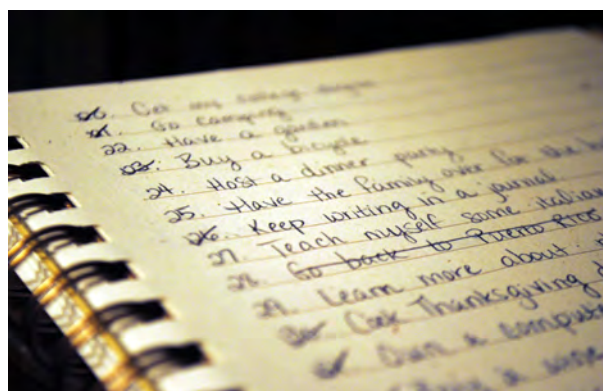 20. Get my college degree
21. Go camping
22. Have a garden
23. Buy a bicycle
24. Host a dinner party
25. Have the family over for the
26. Keep writing in a journal
27. Teach myself some italian
28. Go back to Puerto Rico
29. Learn more about
30. Cook Thanksgiving
31. Own a
a wine